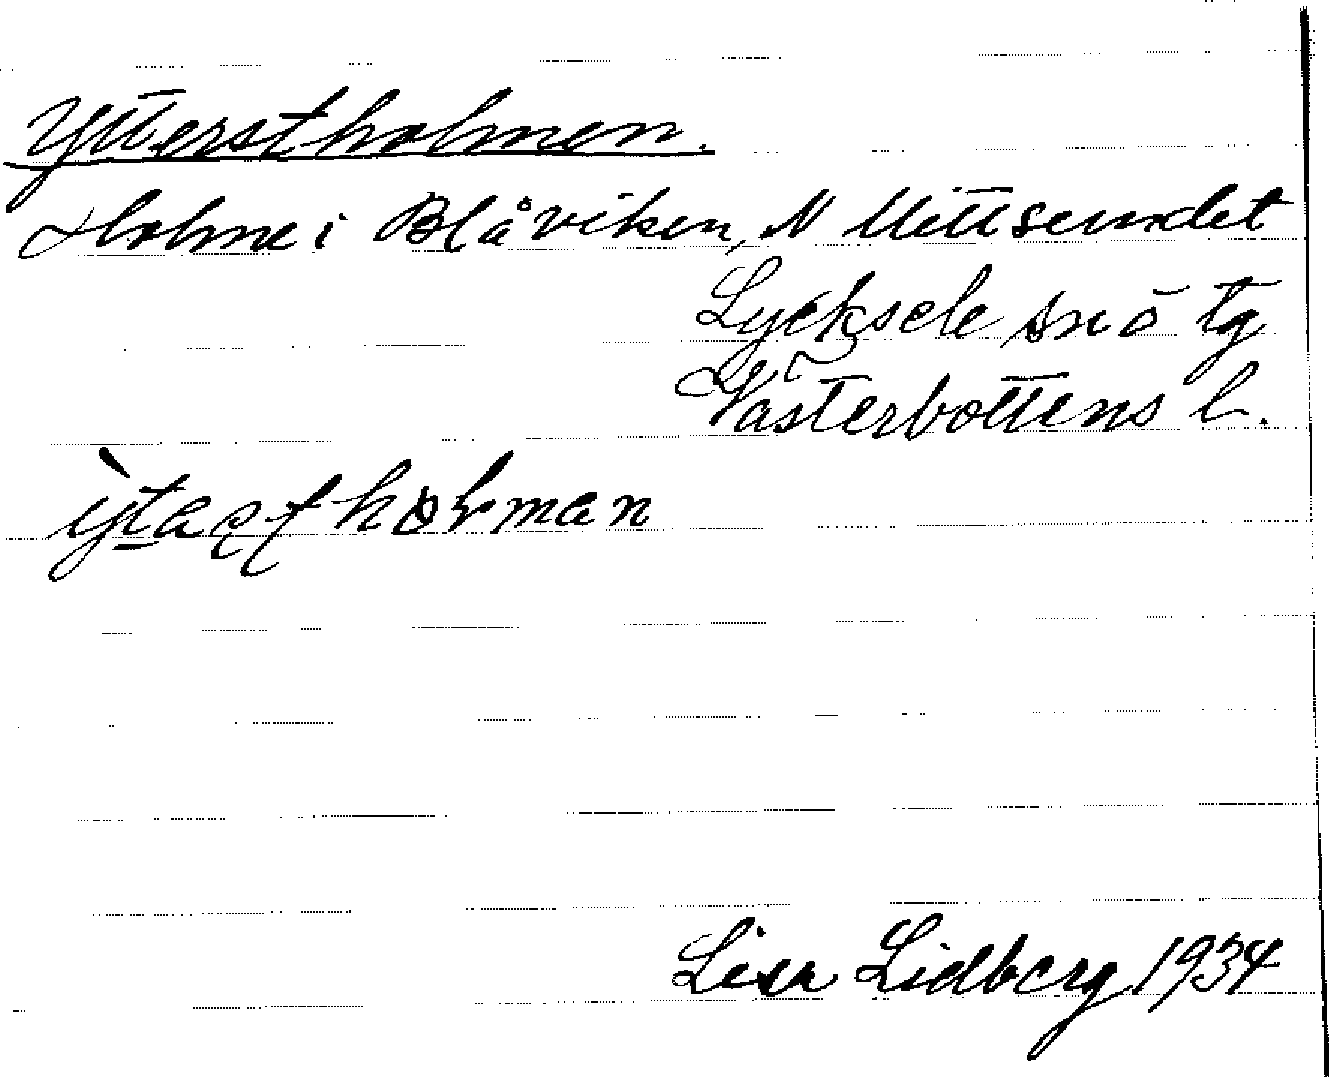 Ytterstholmen.
Holme i Blåviken, N Mittsundet
Lycksele snö tg
Västerbottens l.
ỳtaʂt hoḷman
Lisa Lidberg 1934